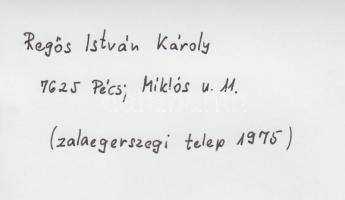 Regős István Károly
7625 Pécs; Miklós u. 11.
(zalaegerszegi telep 1975)